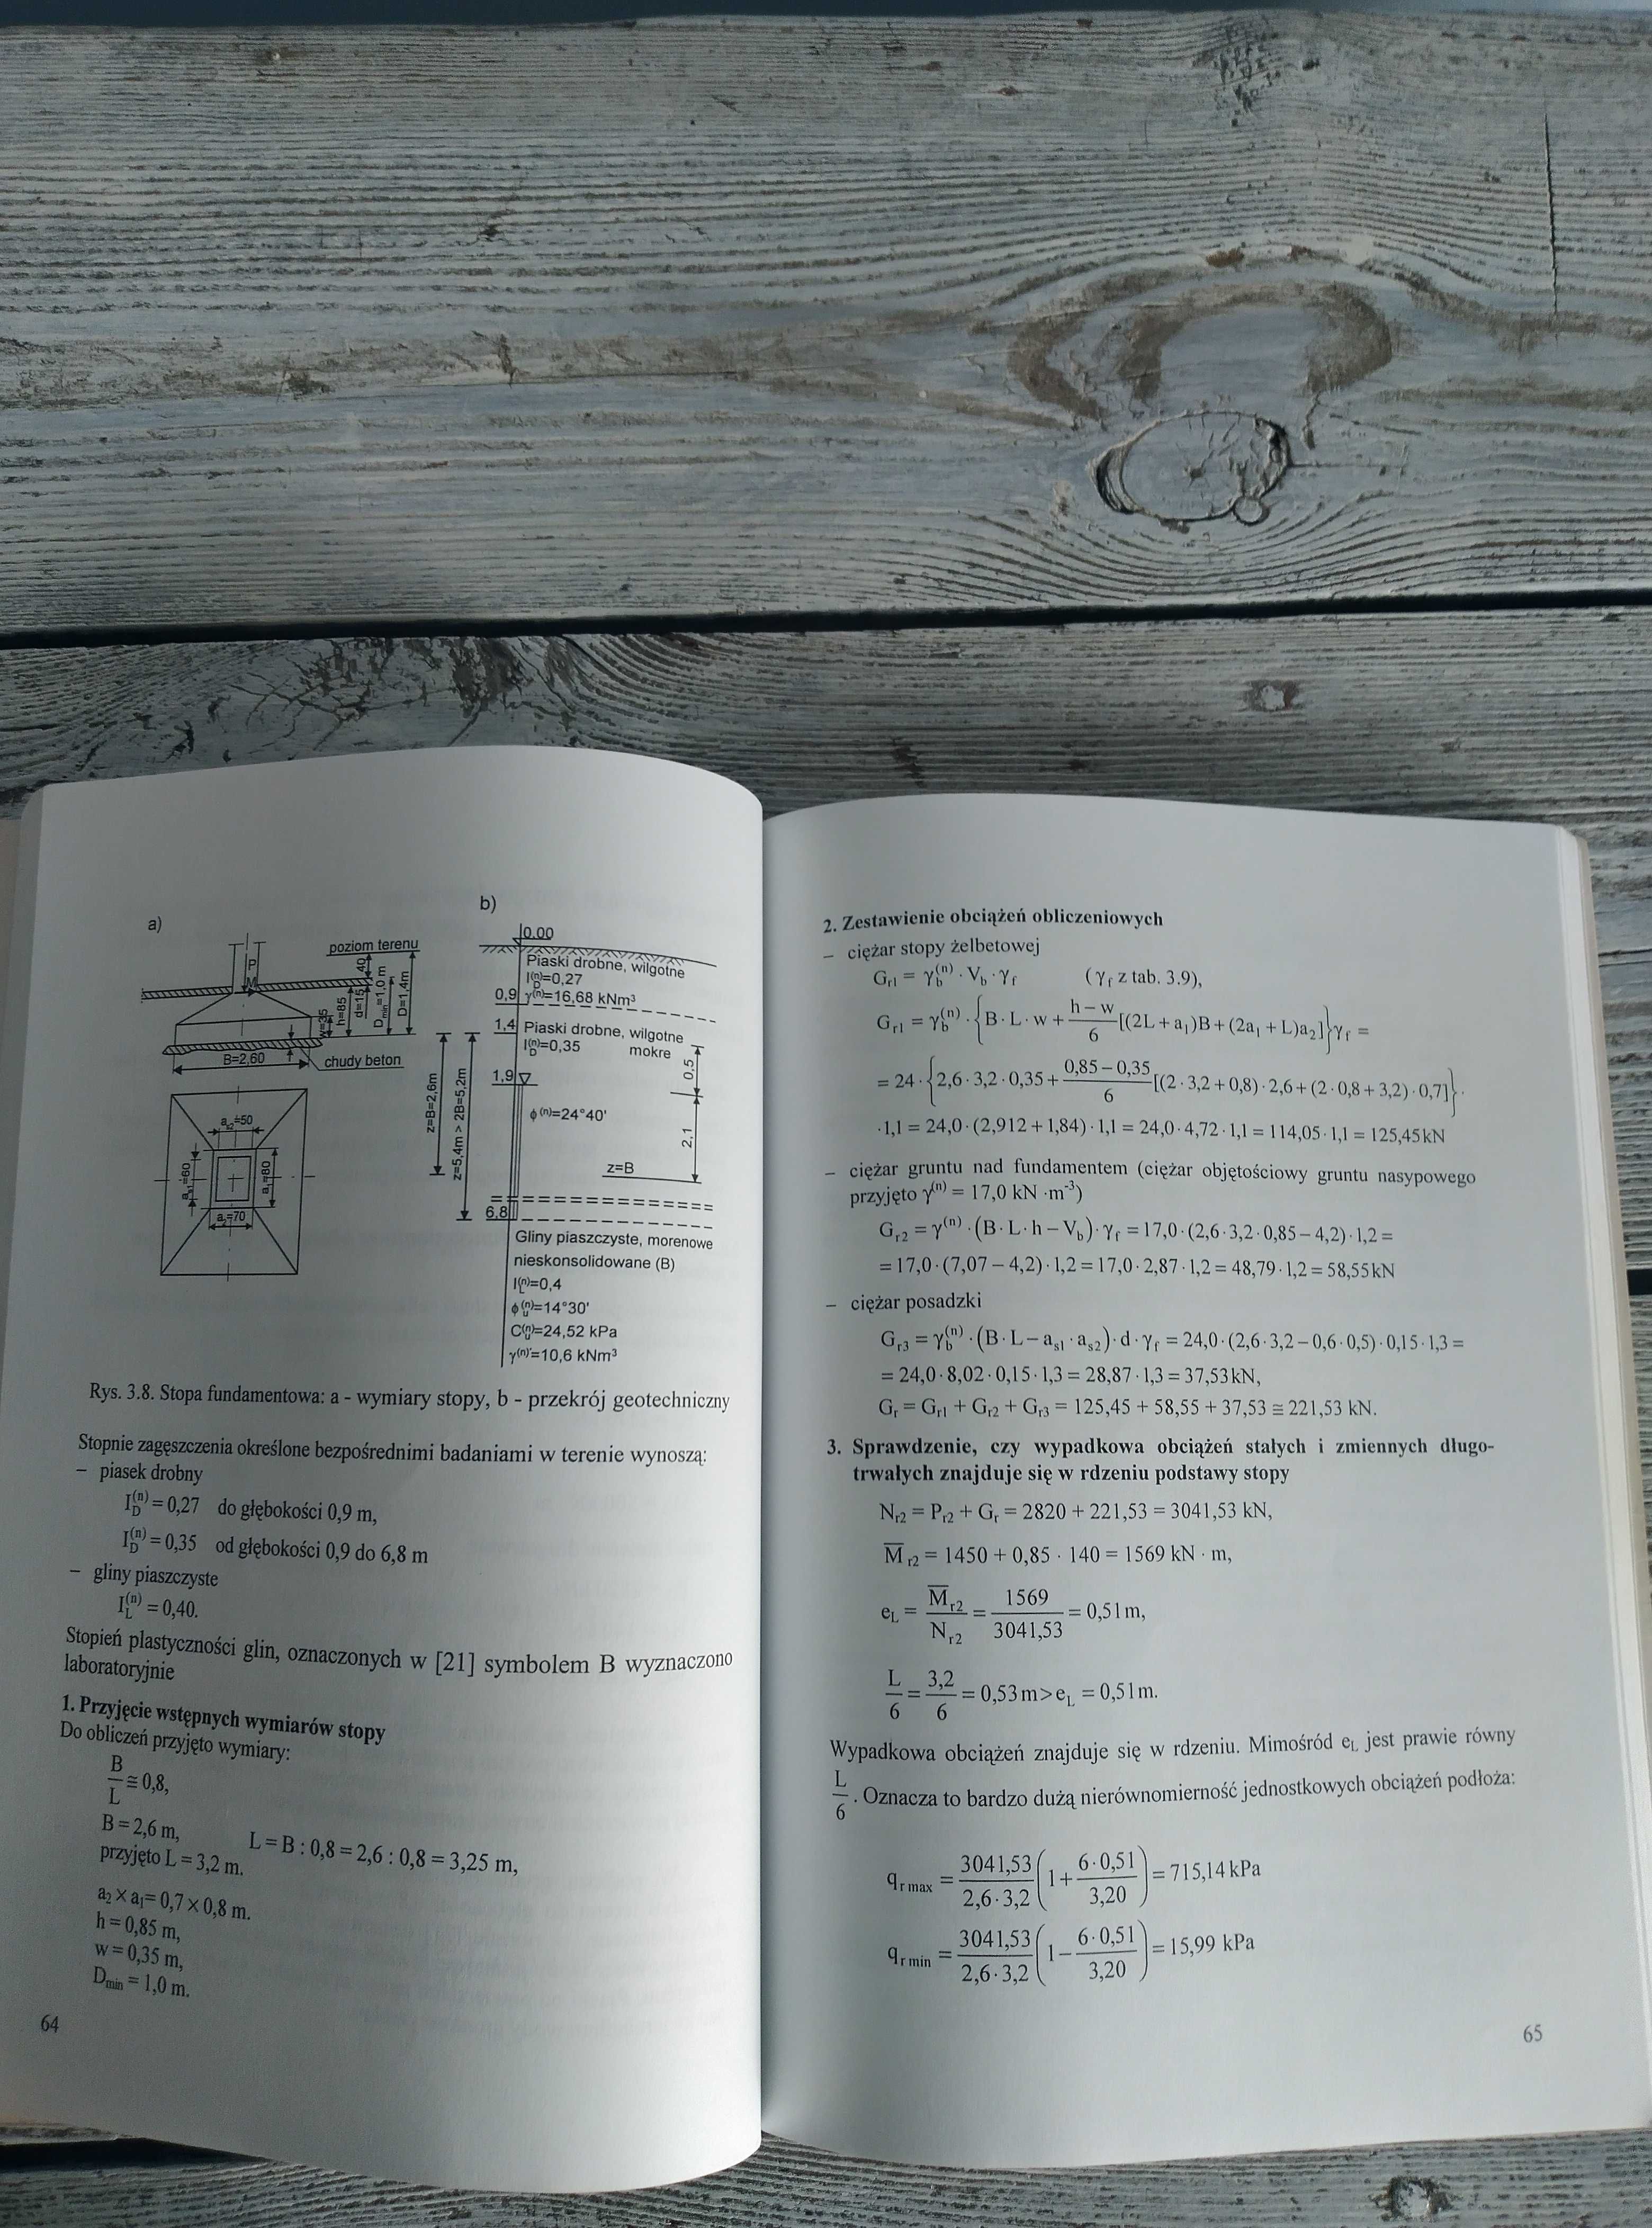 a)
poziom terenu
P
M
40
w=35
h=85
d=15
Dmin=1,0 m
D=1,4m
B=2,60
chudy beton
as2=50
as1=60
a1=80
a2=70
b)
0.00
Piaski drobne, wilgotne
I_D^(n)=0,27
0,9 γ^(n)=16,68 kNm³
1,4 Piaski drobne, wilgotne
I_D^(n)=0,35 mokre
0,5
1,9
ϕ^(n)=24°40'
2,1
z=B=2,6m
z=5,4m > 2B=5,2m
z=B
6,8
Gliny piaszczyste, morenowe
nieskonsolidowane (B)
I_L^(n)=0,4
ϕ_u^(n)=14°30'
C_u^(n)=24,52 kPa
γ^(n)'=10,6 kNm³
Rys. 3.8. Stopa fundamentowa: a - wymiary stopy, b - przekrój geotechniczny
Stopnie zagęszczenia określone bezpośrednimi badaniami w terenie wynoszą:
– piasek drobny
I_D^(n) = 0,27 do głębokości 0,9 m,
I_D^(n) = 0,35 od głębokości 0,9 do 6,8 m
– gliny piaszczyste
I_L^(n) = 0,40.
Stopień plastyczności glin, oznaczonych w [21] symbolem B wyznaczono
laboratoryjnie
1. Przyjęcie wstępnych wymiarów stopy
Do obliczeń przyjęto wymiary:
B/L ≅ 0,8,
B = 2,6 m, L = B : 0,8 = 2,6 : 0,8 = 3,25 m,
przyjęto L = 3,2 m.
a₂ × a₁ = 0,7 × 0,8 m.
h = 0,85 m,
w = 0,35 m,
Dmin = 1,0 m.
64
2. Zestawienie obciążeń obliczeniowych
– ciężar stopy żelbetowej
G_r1 = γ_b^(n) · V_b · γ_f (γ_f z tab. 3.9),
G_r1 = γ_b^(n) · {B · L · w + (h – w)/6 [(2L + a₁)B + (2a₁ + L)a₂]}γ_f =
= 24 · {2,6 · 3,2 · 0,35 + (0,85 – 0,35)/6 [(2 · 3,2 + 0,8) · 2,6 + (2 · 0,8 + 3,2) · 0,7]} ·
·1,1 = 24,0 · (2,912 + 1,84) · 1,1 = 24,0 · 4,72 · 1,1 = 114,05 · 1,1 = 125,45 kN
– ciężar gruntu nad fundamentem (ciężar objętościowy gruntu nasypowego
przyjęto γ^(n) = 17,0 kN ·m⁻³)
G_r2 = γ^(n) · (B · L · h – V_b) · γ_f = 17,0 · (2,6 · 3,2 · 0,85 – 4,2) · 1,2 =
= 17,0 · (7,07 – 4,2) · 1,2 = 17,0 · 2,87 · 1,2 = 48,79 · 1,2 = 58,55 kN
– ciężar posadzki
G_r3 = γ_b^(n) · (B · L – a_s1 · a_s2) · d · γ_f = 24,0 · (2,6 · 3,2 – 0,6 · 0,5) · 0,15 · 1,3 =
= 24,0 · 8,02 · 0,15 · 1,3 = 28,87 · 1,3 = 37,53 kN,
G_r = G_r1 + G_r2 + G_r3 = 125,45 + 58,55 + 37,53 ≅ 221,53 kN.
3. Sprawdzenie, czy wypadkowa obciążeń stałych i zmiennych długo-
trwałych znajduje się w rdzeniu podstawy stopy
N_r2 = P_r2 + G_r = 2820 + 221,53 = 3041,53 kN,
M̅_r2 = 1450 + 0,85 · 140 = 1569 kN · m,
e_L = M̅_r2/N_r2 = 1569/3041,53 = 0,51 m,
L/6 = 3,2/6 = 0,53 m > e_L = 0,51 m.
Wypadkowa obciążeń znajduje się w rdzeniu. Mimośród e_L jest prawie równy
L/6. Oznacza to bardzo dużą nierównomierność jednostkowych obciążeń podłoża:
q_r max = 3041,53/(2,6 · 3,2) (1 + (6 · 0,51)/3,20) = 715,14 kPa
q_r min = 3041,53/(2,6 · 3,2) (1 – (6 · 0,51)/3,20) = 15,99 kPa
65